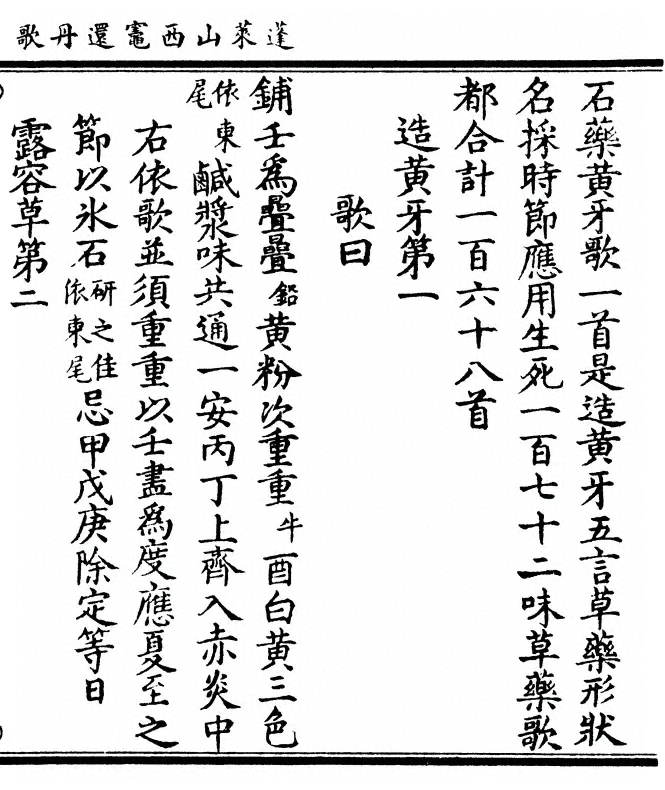 蓬萊山西竈還丹歌
石藥黃牙歌一首是造黃牙五言草藥形狀
名採時節應用生死一百七十二味草藥歌
都合計一百六十八首
造黃牙第一
歌曰
鋪壬爲疊疊鉛黃粉次重重牛酉白黃三色
依東尾鹹漿味共通一安丙丁上齊入赤炎中
右依歌並須重重以壬盡爲度應夏至之
節以氷石研之佳依東尾忌甲戊庚除定等日
露容草第二